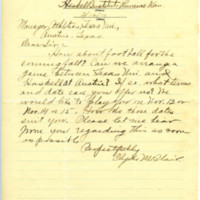 Haskell Institute, Kansas
Manager, Athletics, Texas Uni.,
Austin, Texas.
Dear Sir:
How about football for the
coming fall? Can we arrange a
game between Texas Uni. and
Haskell at Austin? If so, what terms
and date can you offer us? We
would like to play you in Nov. 12 or
Nov. 14 or 15. How do these dates
suit you. Please let me hear
from you regarding this as soon
as possible.
Respectfully,